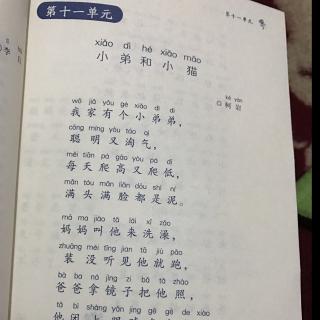 第十一单元
第十一单元
xiǎo dì hé xiǎo māo
小弟和小猫
kē yán
柯岩
wǒ jiā yǒu gè xiǎo dì di
我家有个小弟弟，
cōng míng yòu táo qì
聪明又淘气，
měi tiān pá gāo yòu pá dī
每天爬高又爬低，
mǎn tóu mǎn liǎn dōu shì ní
满头满脸都是泥。
mā ma jiào tā lái xǐ zǎo
妈妈叫他来洗澡，
zhuāng méi tīng jiàn tā jiù pǎo
装没听见他就跑，
bà ba ná jìng zi bǎ tā zhào
爸爸拿镜子把他照，
tā bì shàng yǎn jing gē gē de xiào
他闭上眼睛